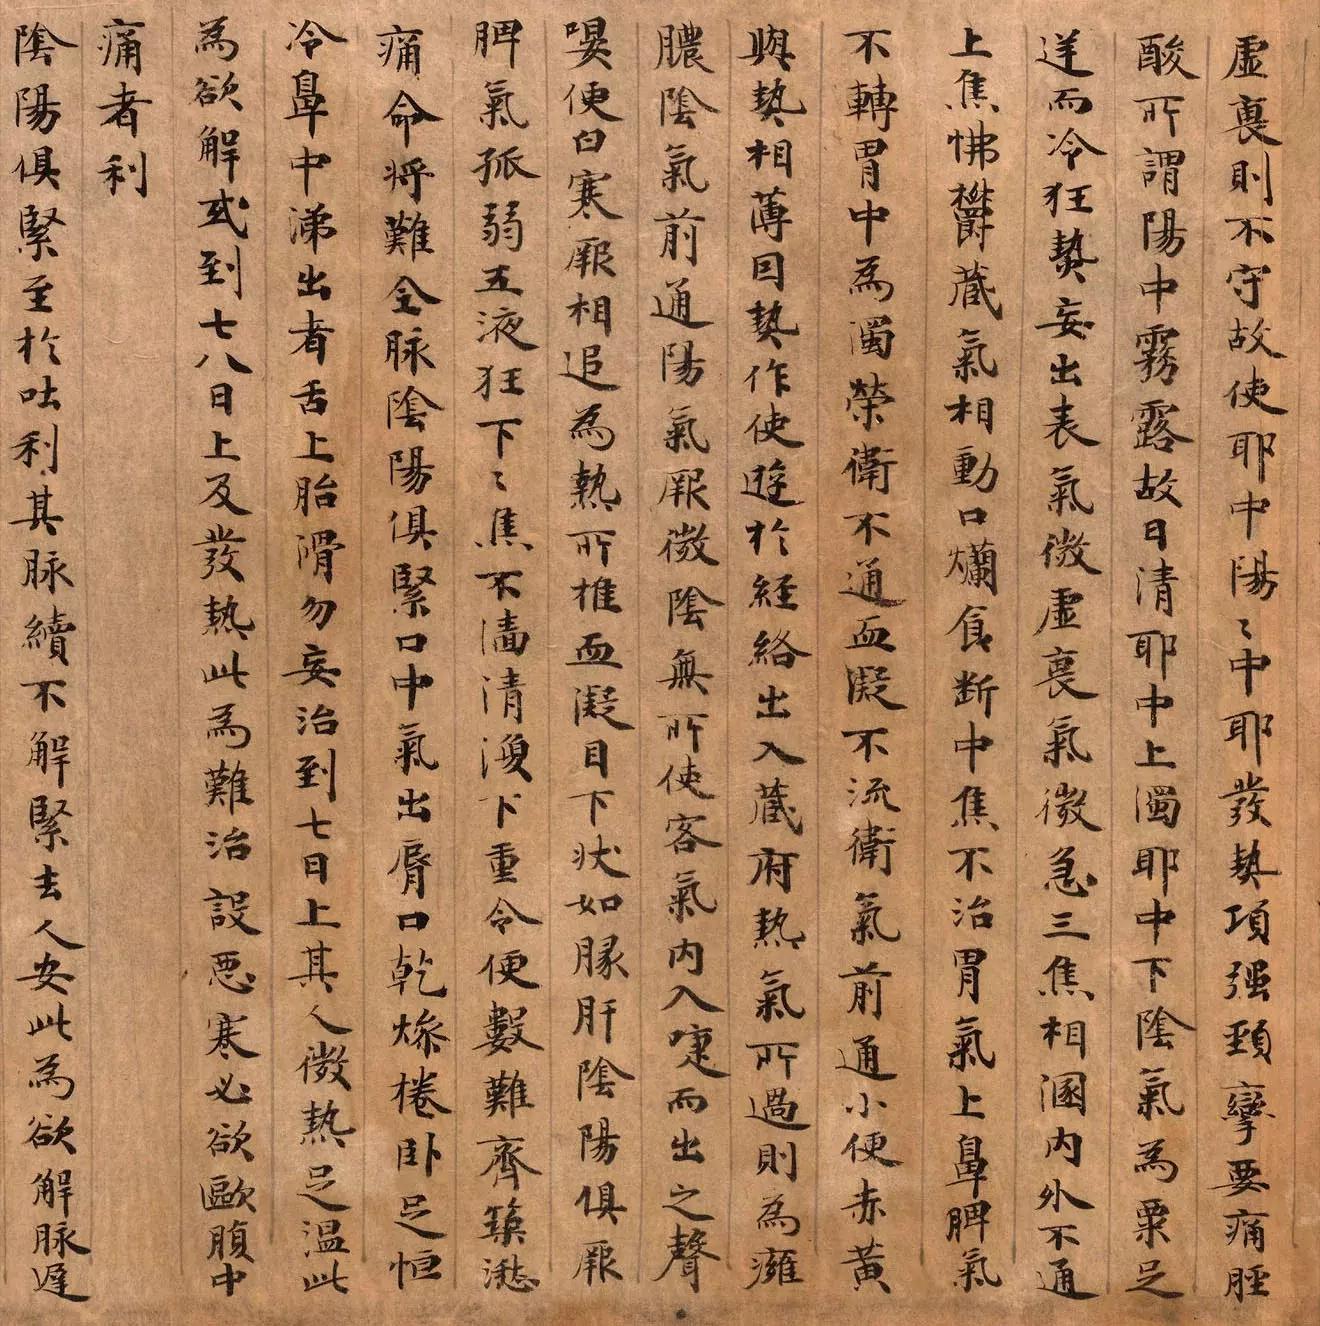 虛裏則不守故使耶中陽〻中耶發熱項强頸攣要痛脛
酸所謂陽中霧露故曰清耶中上濁耶中下陰氣為粟足
逆而冷狂熱妄出表氣微虛裏氣微急三焦相溷内外不通
上焦怫欝蔵氣相動口爛食断中焦不治胃氣上鼻脾氣
不轉胃中為濁榮衛不通血凝不流衛氣前通小便赤黃
與熱相薄因熱作使遊於経絡出入蔵府熱氣所過則為癰
膿陰氣前通陽氣厥微陰無所使客氣内入嚏而出之聲
嗢便臼寒厥相追為熱所推血凝目下状如豚肝陰陽俱厥
脾氣孤弱五液狂下〻焦不濇清溲下重令便數難齊築湫
痛命將難全脉陰陽俱緊口中氣出脣口乾燥棬卧足恒
冷鼻中涕出者舌上胎滑勿妄治到七日上其人微熱足温此
為欲解或到七八日上反發熱此為難治設惡寒必欲歐腹中
痛者利
陰陽俱緊至於吐利其脉續不解緊去人安此為欲解脉遲